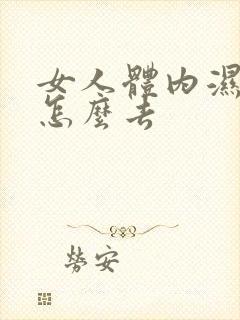 女人體內濕
怎麼去
勞安